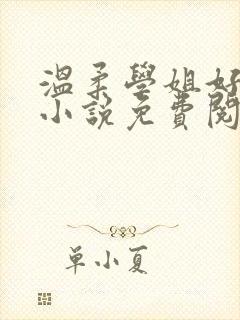 溫柔學姐好
小說免費閱
單小夏